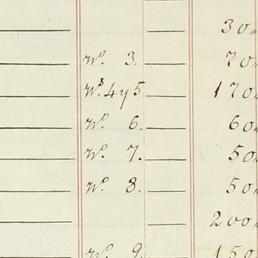 30
Nº 3. 70
Nº 4 y 5 170
Nº 6. 60
Nº 7. 50
Nº 8. 50
200
Nº 9. 150